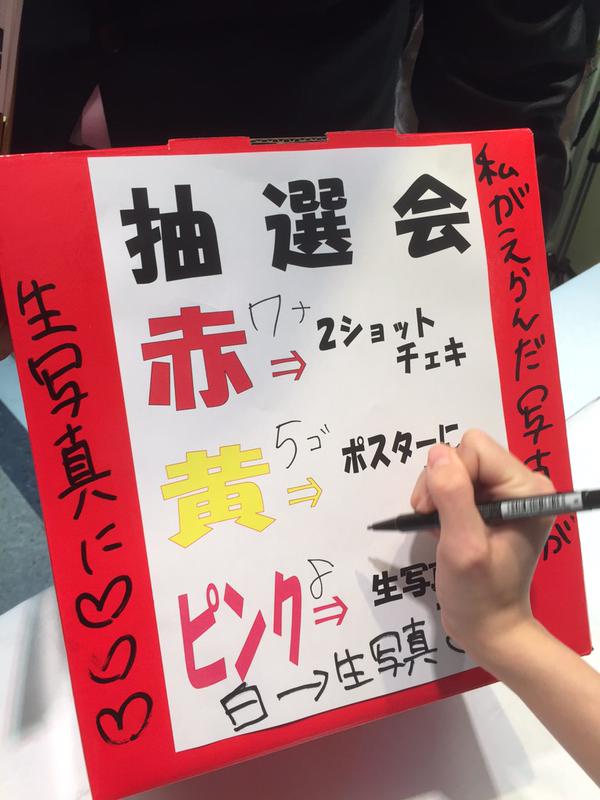 抽選会
赤 ワナ ⇒ 2ショット
チェキ
黄 5ゴ ⇒ ポスターに
ピンク ⇒ 生写
白→生写真
生写真に♡♡♡
私がえらんだ写
が